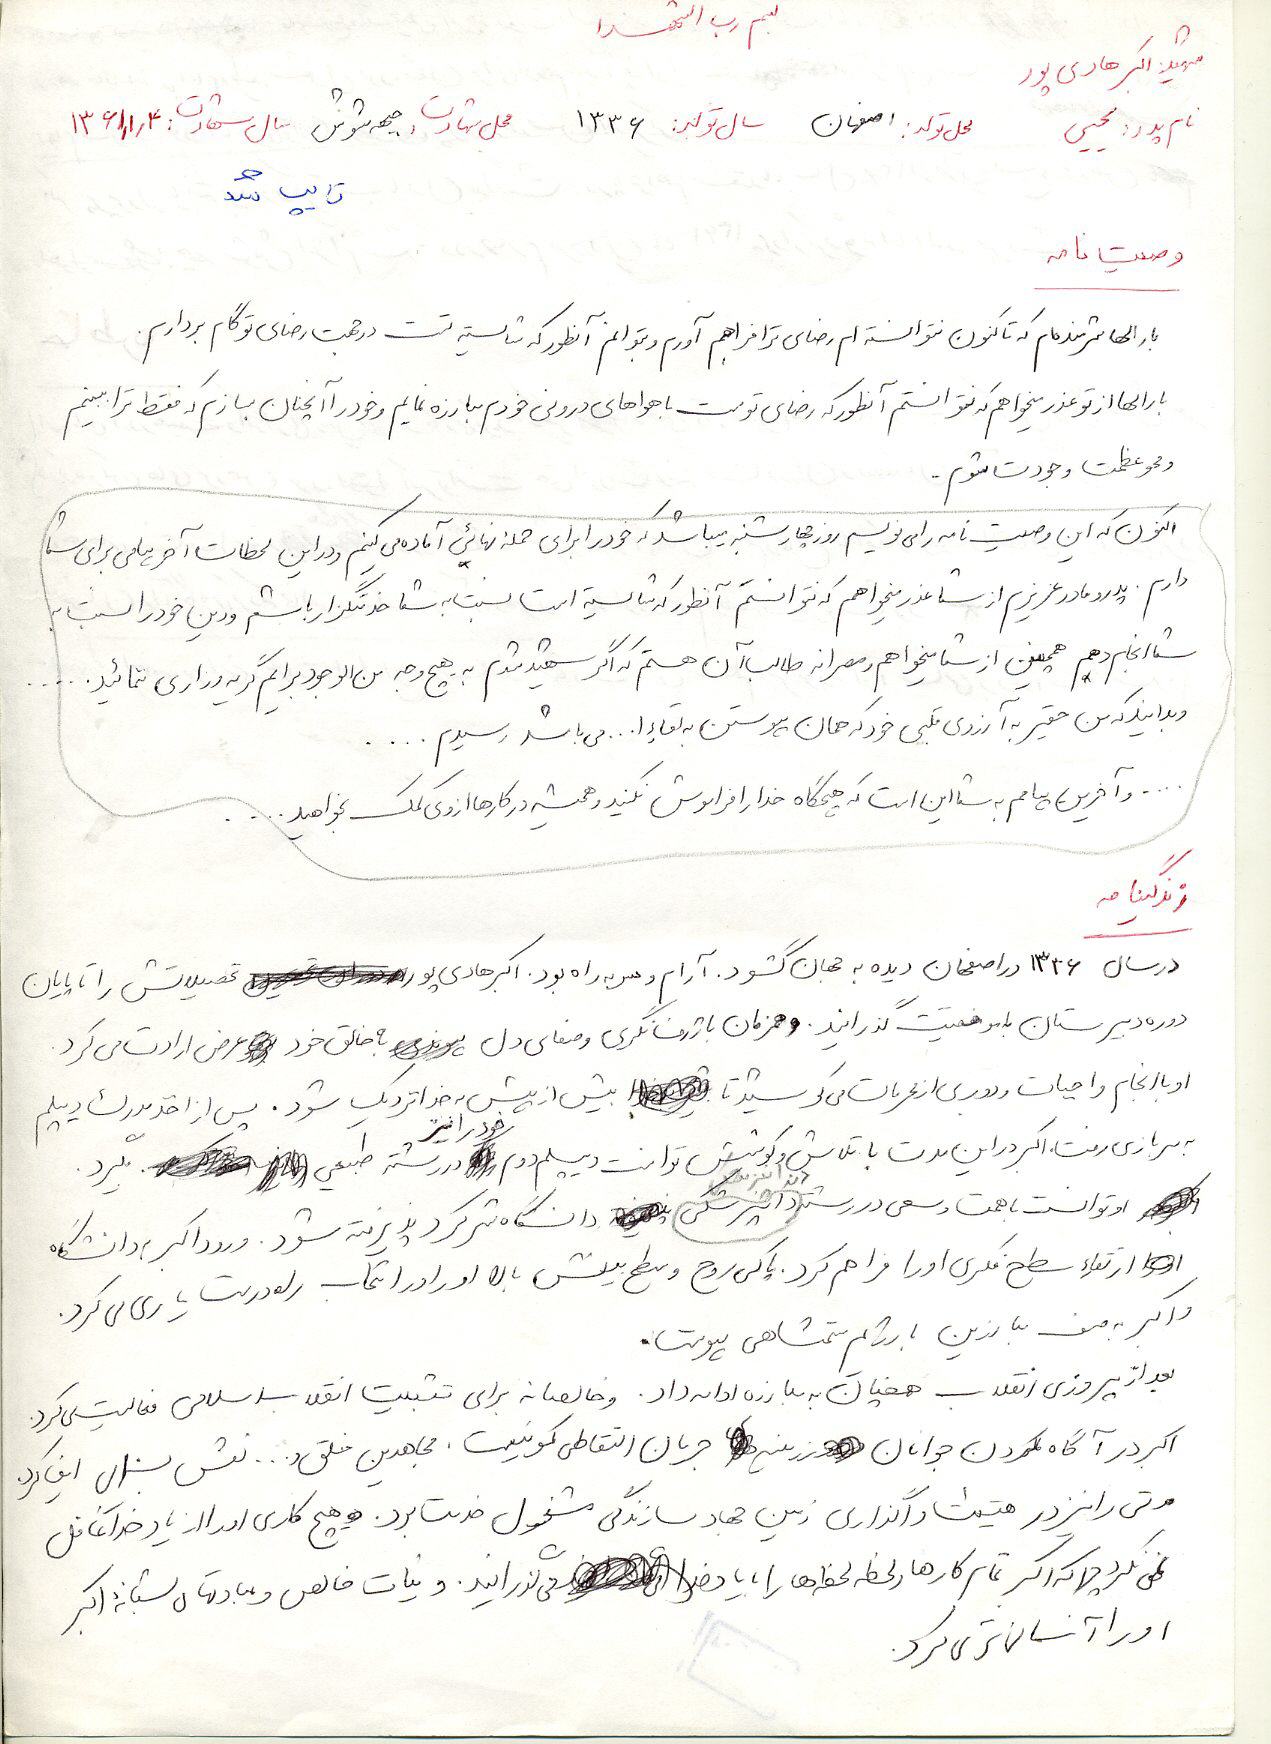 بسم رب الشهدا
شهید: اکبر هادی پور
نام پدر: یحیی محل تولد: اصفهان سال تولد: ۱۳۳۶ محل شهادت: جبهه شوش سال شهادت: ۱۳۶۱/۱/۴
تایپ شد
وصیت نامه
بار الها شرمنده‌ام که تاکنون نتوانسته ام رضای ترا فراهم آورم و بتوانم آنطور که شایسته تست در جهت رضای تو گام بردارم.
بار الها از تو عذر میخواهم که نتوانستم آنطور که رضای توست با هواهای درونی خودم مبارزه نمایم و خود را آنچنان بسازم که فقط ترا ببینم
و محو عظمت وجودت شوم.
اکنون که این وصیت نامه را می نویسم روز چهارشنبه میباشد که خود را برای حمله نهائی آماده می کنیم و در این لحظات آخر پیامی برای شما
دارم. پدر و مادر عزیزم از شما عذر میخواهم که نتوانستم آنطور که شایسته است نسبت به شما خدمتگزار باشم و دین خود را نسبت به
شما انجام دهم همچنین از شما میخواهم و مصرانه طالب آن هستم که اگر شهید شدم به هیچ وجه من الوجود برایم گریه و زاری ننمائید.....
و بدانید که من حقیر به آرزوی قلبی خود که همان پیوستن به لقاء ا... می باشد رسیدم ....
.... و آخرین پیامم به شما این است که هیچگاه خدا را فراموش نکنید و همیشه در کارها از وی کمک بخواهید ....
زندگینامه
در سال ۱۳۳۶ در اصفهان دیده به جهان گشود. آرام و سر به راه بود. اکبر هادی پور تحصیلاتش را تا پایان
دوره دبیرستان با موفقیت گذرانید. و همزمان با ژرفانگری و صفای دل با خالق خود عرض ارادت می کرد.
او با انجام واجبات و دوری از محرمات می کوشید تا بیش از پیش به خدا نزدیک شود. پس از اخذ مدرک دیپلم
به سربازی رفت. اکبر در این مدت با تلاش و کوشش توانست دیپلم دوم خود را نیز در رشته طبیعی بگیرد.
او توانست با همت و سعی در رشته دامپزشکی دانشگاه شهرکرد پذیرفته شود. ورود اکبر به دانشگاه
ارتقاء سطح فکری او را فراهم کرد. پاکی روح و سطح بینش بالا او را در انتخاب راه درست یاری می کرد.
و اکبر به صف مبارزین با رژیم ستمشاهی پیوست.
بعد از پیروزی انقلاب همچنان به مبارزه ادامه داد. و خالصانه برای تثبیت انقلاب اسلامی فعالیت می کرد.
اکبر در آگاه کردن جوانان در زمینه جریان التقاطی کمونیست، مجاهدین خلق و... نقش بسزایی ایفا کرد.
مدتی را نیز در هیئت واگذاری زمین جهاد سازندگی مشغول خدمت بود. و هیچ کاری او را از یاد خدا غافل
نمی کرد چرا که اکبر تمام کارها و لحظه لحظه‌ها را با یاد خدا می گذرانید. و نیات خالص و عبادتهای شبانه اکبر
او را آنسانی تر می کرد.